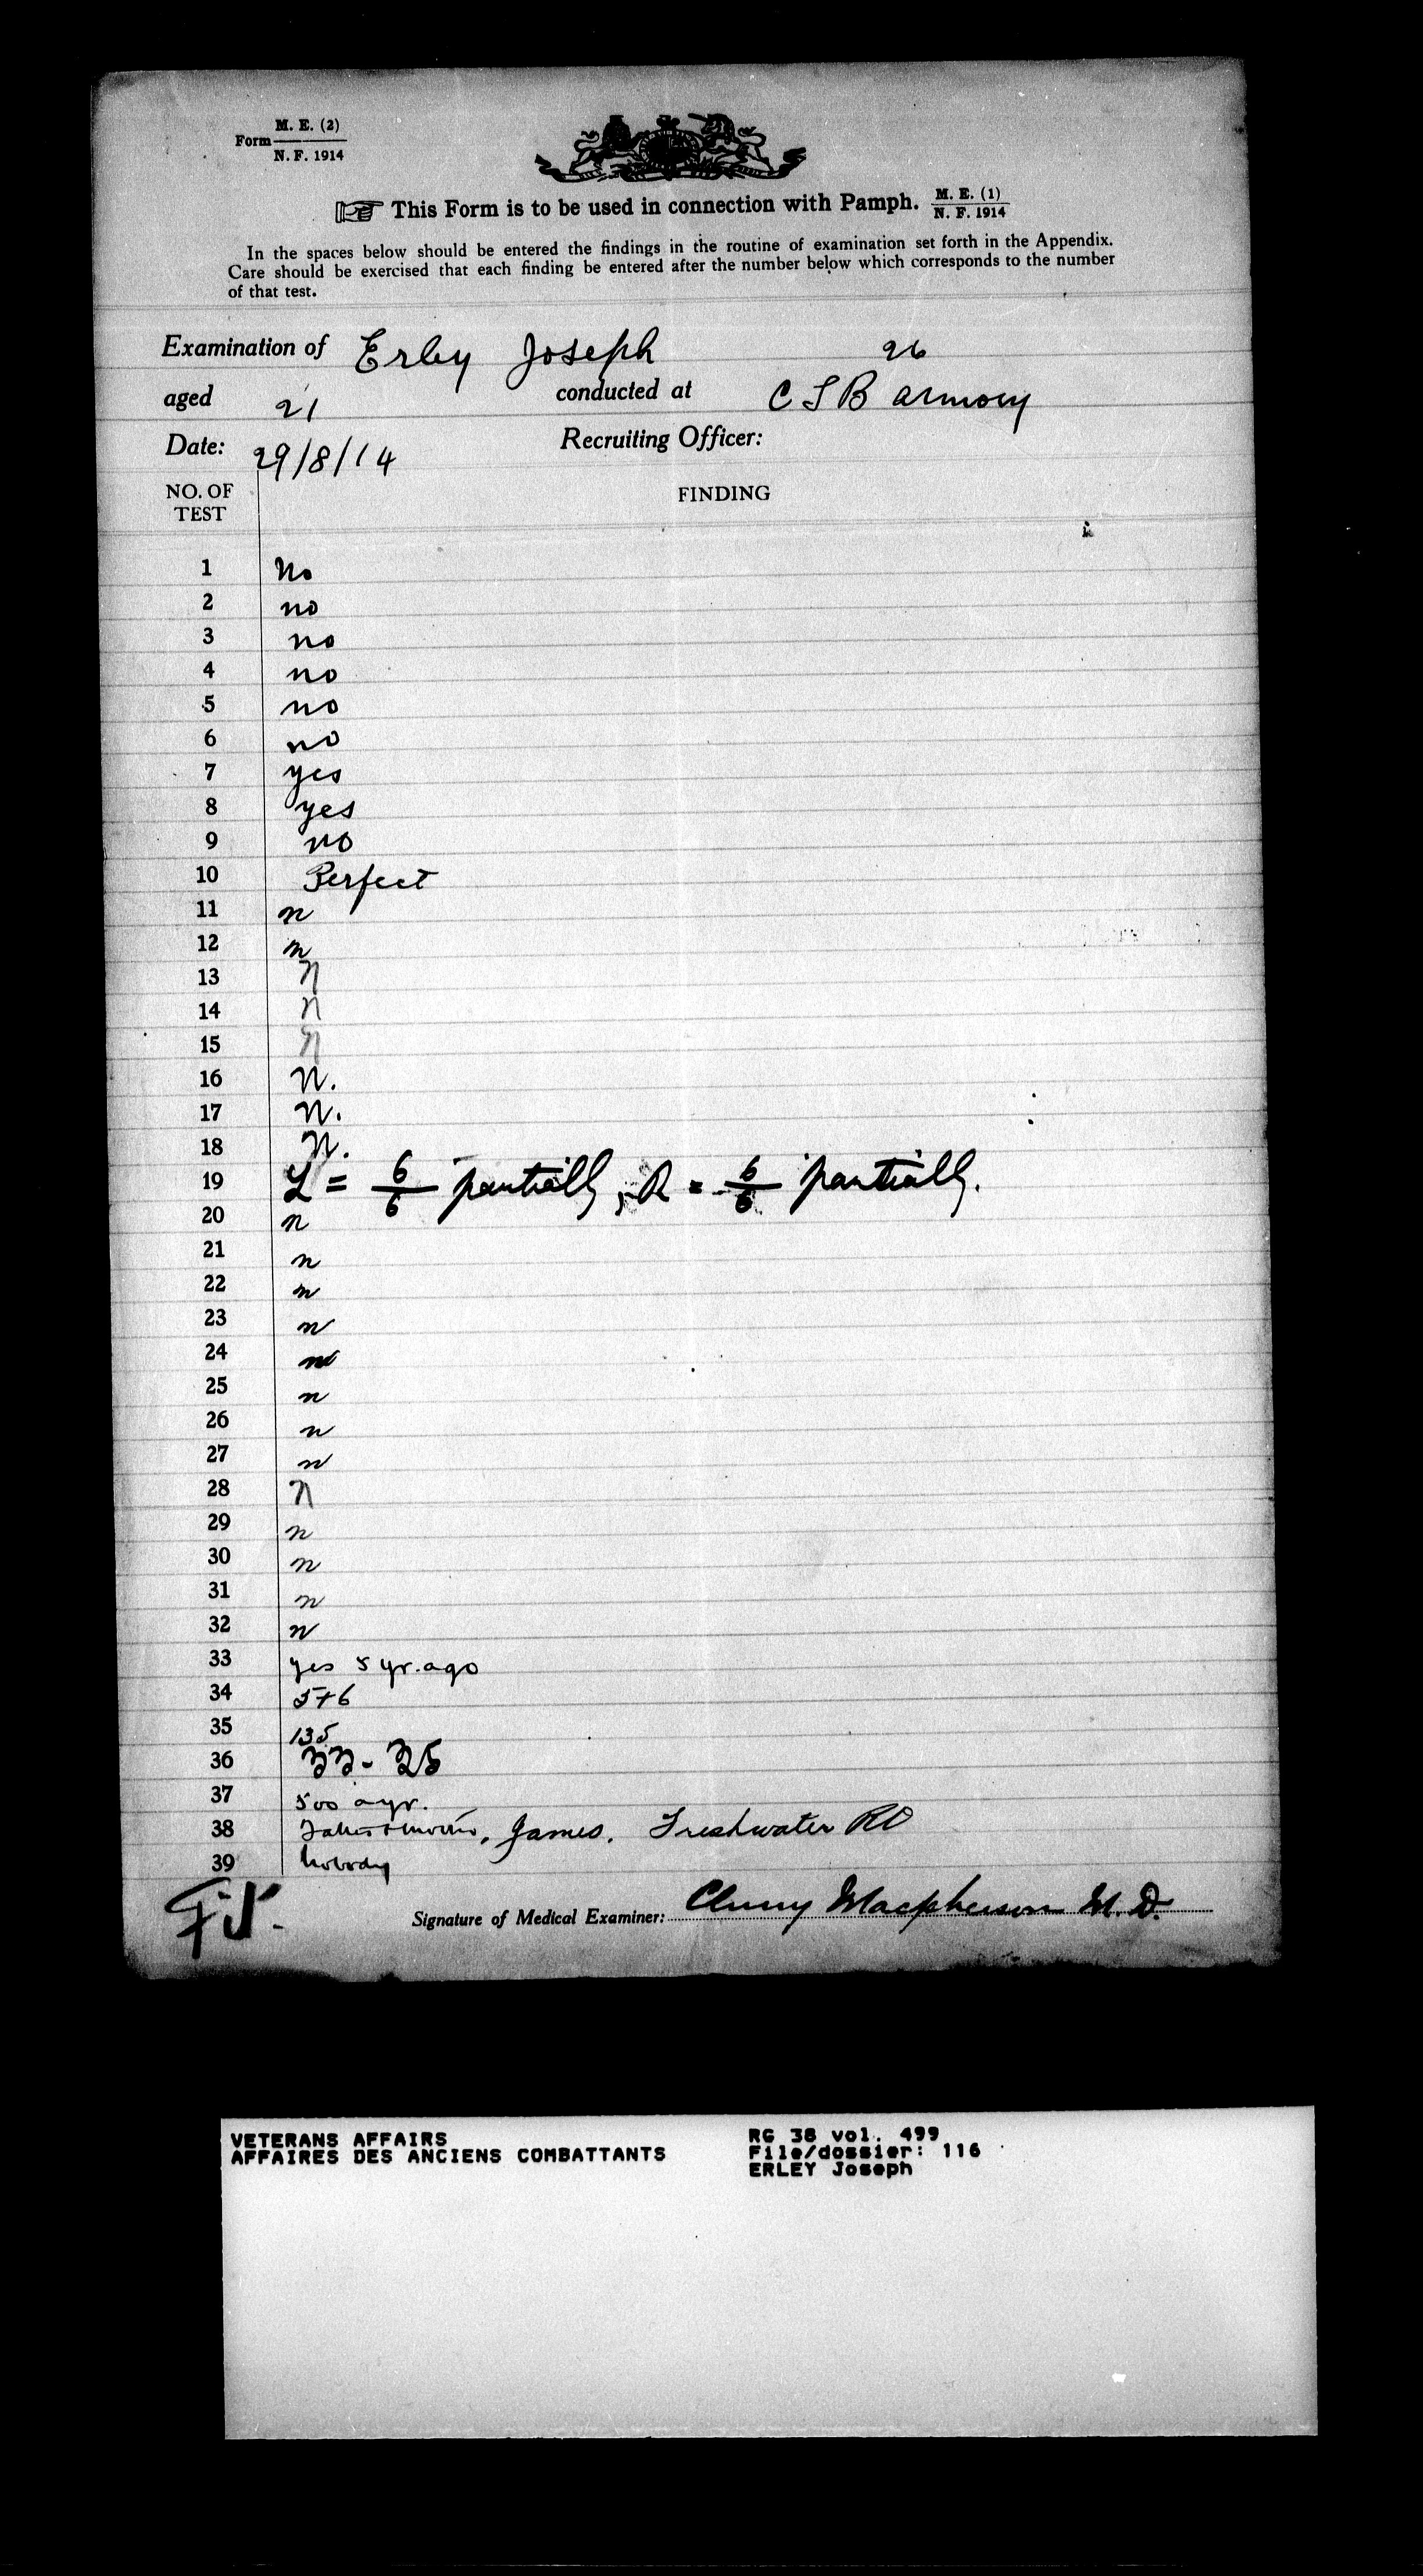 M. E. (2)
Form
N. F. 1914
This Form is to be used in connection with Pamph. M. E. (1)
N. F. 1914
In the spaces below should be entered the findings in the routine of examination set forth in the Appendix.
Care should be exercised that each finding be entered after the number below which corresponds to the number
of that test.
Examination of Erley Joseph 26
aged 21 conducted at C L B armory
Date: 29/8/14 Recruiting Officer:
NO. OF TEST FINDING
1 No
2 no
3 no
4 no
5 no
6 no
7 yes
8 yes
9 no
10 Perfect
11 n
12 n
13 n
14 n
15 n
16 N.
17 N.
18 N.
19 L = 6/6 partially, R = 6/6 partially.
20 n
21 n
22 n
23 n
24 n
25 n
26 n
27 n
28 n
29 n
30 n
31 n
32 n
33 yes 5 yr. ago
34 5+6
35 135
36 33-35
37 500 a yr.
38 Father & mother, James. Freshwater Rd
39 nobody
Fit.
Signature of Medical Examiner: Cluny Macpherson M.D.
VETERANS AFFAIRS
AFFAIRES DES ANCIENS COMBATTANTS
RG 38 vol. 499
File/dossier: 116
ERLEY Joseph